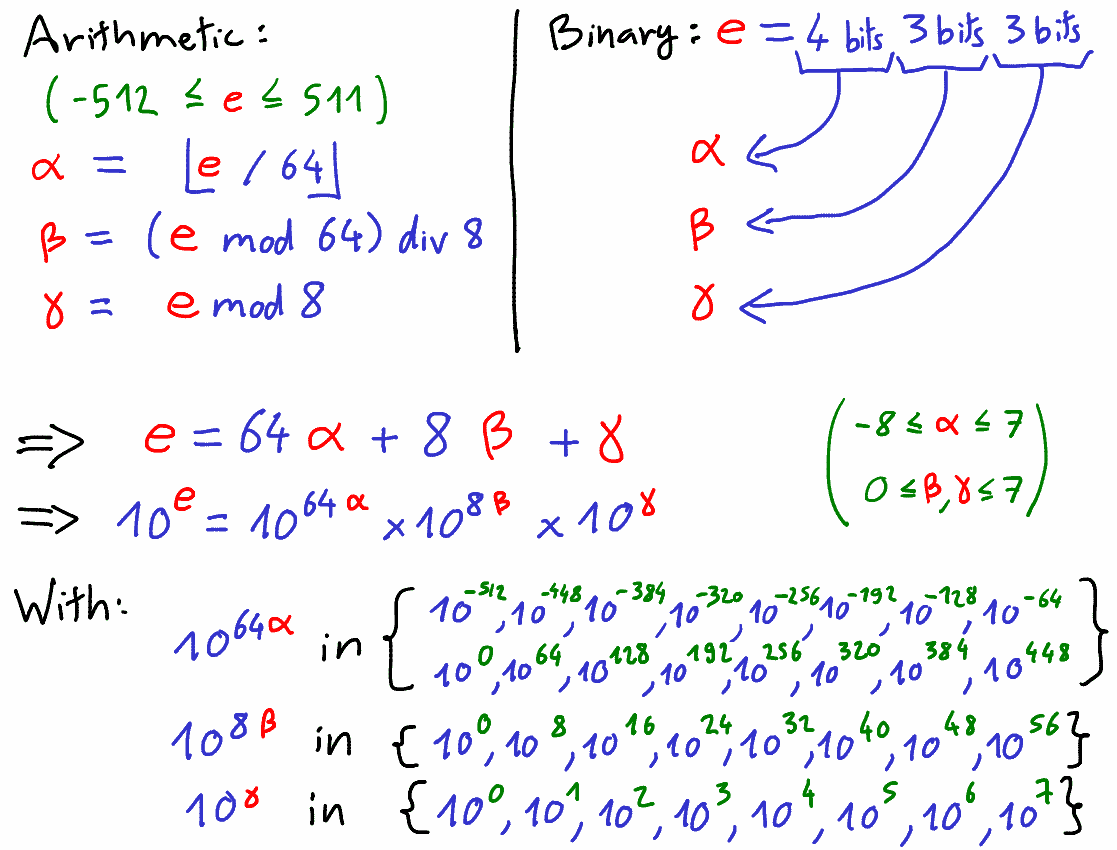 Arithmetic:
(-512 ≤ e ≤ 511)
α = ⌊e / 64⌋
β = (e mod 64) div 8
γ = e mod 8
Binary: e = 4 bits 3 bits 3 bits
α
β
γ
⇒ e = 64 α + 8 β + γ
(-8 ≤ α ≤ 7
0 ≤ β, γ ≤ 7)
⇒ 10^e = 10^64α × 10^8β × 10^γ
With:
10^64α in {10^-512, 10^-448, 10^-384, 10^-320, 10^-256, 10^-192, 10^-128, 10^-64
10^0, 10^64, 10^128, 10^192, 10^256, 10^320, 10^384, 10^448}
10^8β in {10^0, 10^8, 10^16, 10^24, 10^32, 10^40, 10^48, 10^56}
10^γ in {10^0, 10^1, 10^2, 10^3, 10^4, 10^5, 10^6, 10^7}